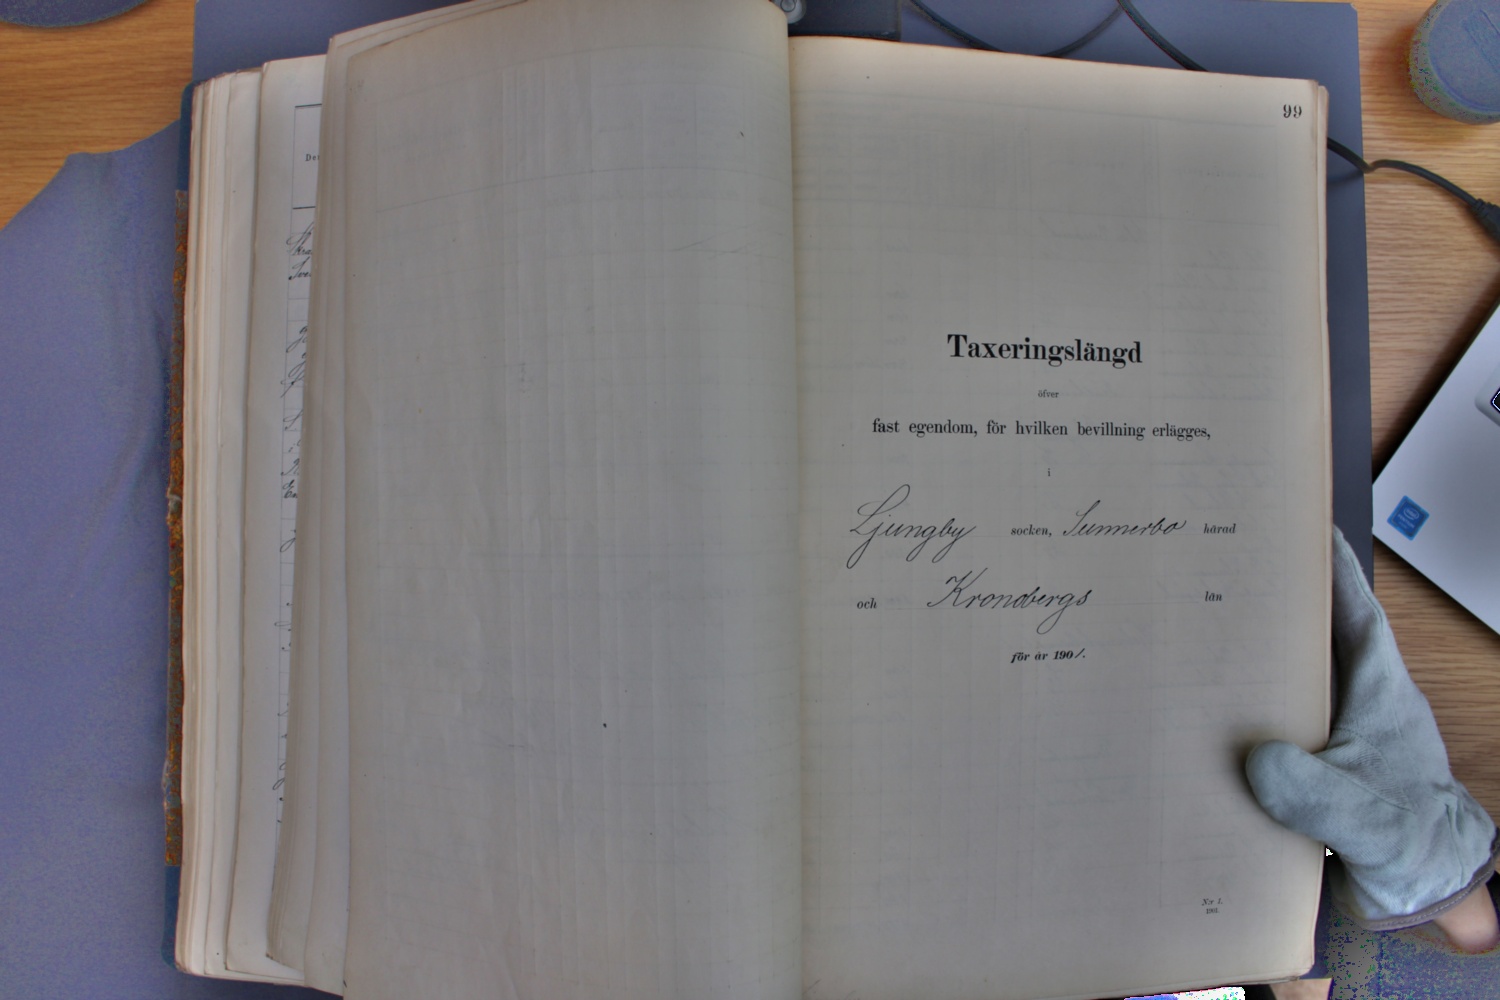 99
Taxeringslängd
öfver
fast egendom, för hvilken bevillning erlägges,
i
Ljungby socken, Sunnerbo härad
och Kronobergs län
för år 1901.
N:r 1.
1901.